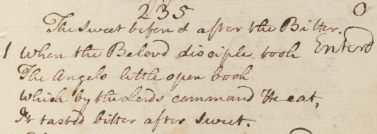 235 0
The Sweet before & after the Bitter.
1 When the Belovd disciple took Enterd
The Angels little open book
Which by the Lords command He eat,
It tasted bitter after Sweet.